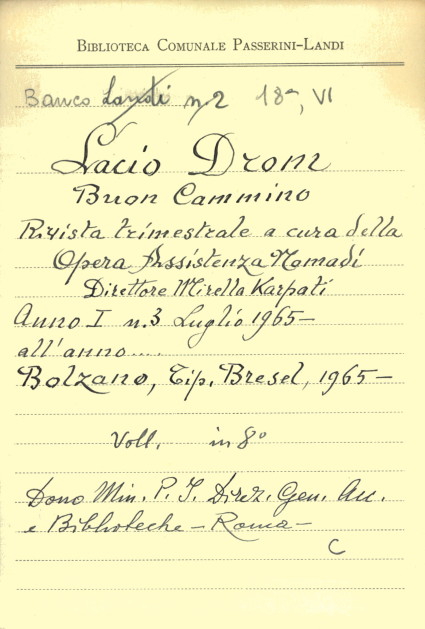 BIBLIOTECA COMUNALE PASSERINI-LANDI
Banco Landi n 2 18a, VI
Lacio Drom
Buon Cammino
Rivista trimestrale a cura della
Opera Assistenza Nomadi
Direttore Mirella Karpati
Anno I n. 3 Luglio 1965-
all'anno....
Bolzano, Tip. Bresel, 1965-
Voll. in 8°
Dono Min. P. I. Direz. Gen. Acc.
e Biblioteche - Roma -
C